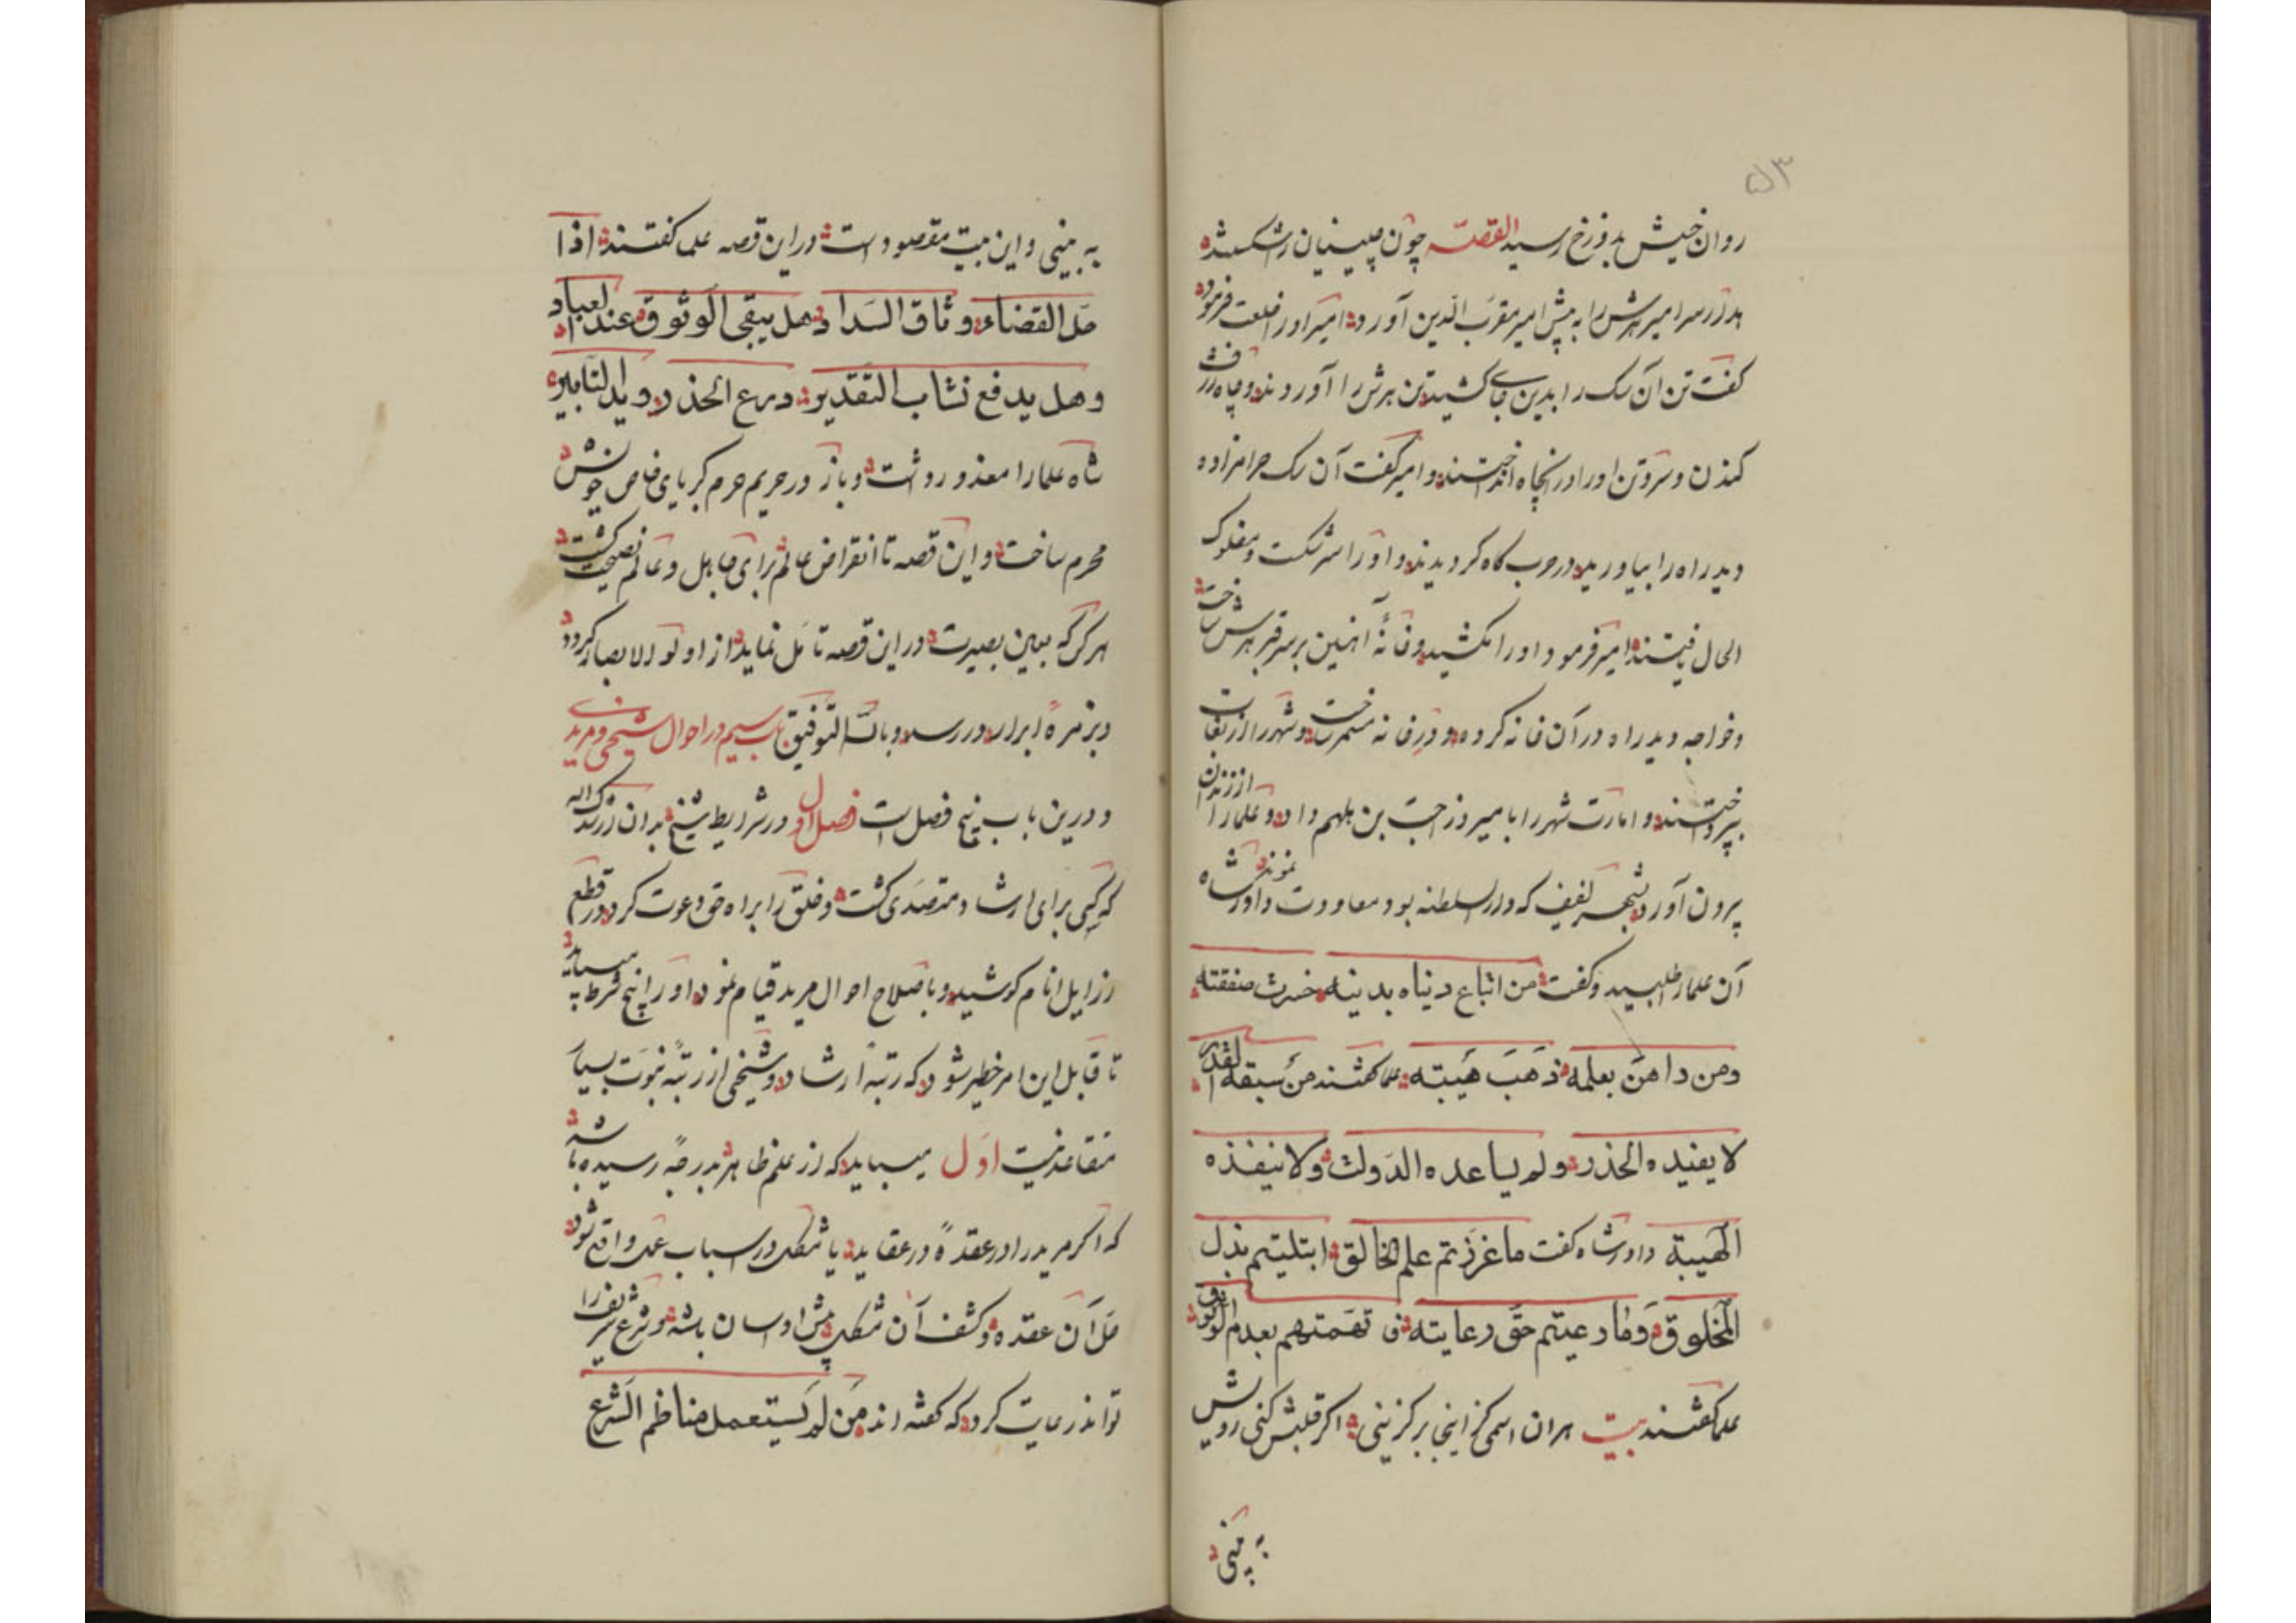 ۵۳
روان خبیش بدوزخ رسید القصّه چون چینیان را شکست شد
بدر سرا میر هرش را به پیش امیر مقرب الدین آورد امیر او را خلعت فرمود
کفت تن آن سک را بدین جای کشید تن هرش را آوردند و چاه ژرف
کندن و سر و تن او را در انچاه انداختند و امیر کفت آن سک حرامزاده
ویدراه را بیاورید در حرب کاه کردیدند و او را شرکت و مفلوک
الحال یافتند امیر فرمود او را بکشید و خانهٔ آهنین بر سر قبر هرش ساخت
و خواجه ویدراه در آن خانه کرده و در خانه مسمر ساخت و شهر را از بغات
بپرداختند و امارت شهر را با میروز احبّ بن بلهم داد و علما را از زندان
بیرون آورد بشهر لفیف که دار السلطنه بود معاودت نمودند داور شاه
آن علما را طلبید و کفت من اتباع دیناه بدینه خسرت صفقته
ومن داهن بعلمه ذهب هیبته علما کفتند من سبقه القدر
لا یفیده الحذر ولم یساعده الدولت ولا ینفذه
الهیبة داور شاه کفت ما غرزتم علم الخالق ابتلیتم بذل
المخلوق وما رعیتم حق رعایته تهمتهم بعدم الوثوق
علما کفتند بیت هران اسمی کز اینجا برکزینی اکر قلبش کنی رویش
به بینی
به بینی و این بیت مقصود است در این قصه علما کفتند اذا
حل القضاء وثاق السداد هل یبقی الوثوق عند العباد
وهل یدفع نشاب التقدیر درع الحذر وید التابیر
شاه علما را معذور داشت و باز در حریم حرم کبریای خاص خویش
محرم ساخت و این قصه تا انقراض عالم برای جاهل و عالم نصیحت کشت
هر کس که بعین بصیرت در این قصه تامّل نماید از اولو الابصار کردد
و بزمرهٔ ابرار در رسد و بالله التوفیق باب سیم در احوال شیخی و مریدی
و درین باب پنج فصل است فصل اول در شرایط شیخ بدان ارشدک الله
که کسی برای ارشاد متصدی کشت و خلق را براه حق دعوت کرد و در قطع
رزایل انام کوشید و باصلاح احوال مرید قیام نمود او را پنج شرط میباید
تا قابل این امر خطیر شود که رتبهٔ ارشاد و شیخی از رتبهٔ نبوت بسیار
متقاعد نیست اول میباید که از علم ظاهر بدرجهٔ رسیده باشد
که اکر مرید را در عقدهٔ در عقاید یا مشکل در اسباب عمل واقع شود
حل آن عقده و کشف آن مشکل پیش او اسان باشد و شرع شریف را
تواند رعایت کرد که کفته اند من لم یستعمل مناظم الشرع